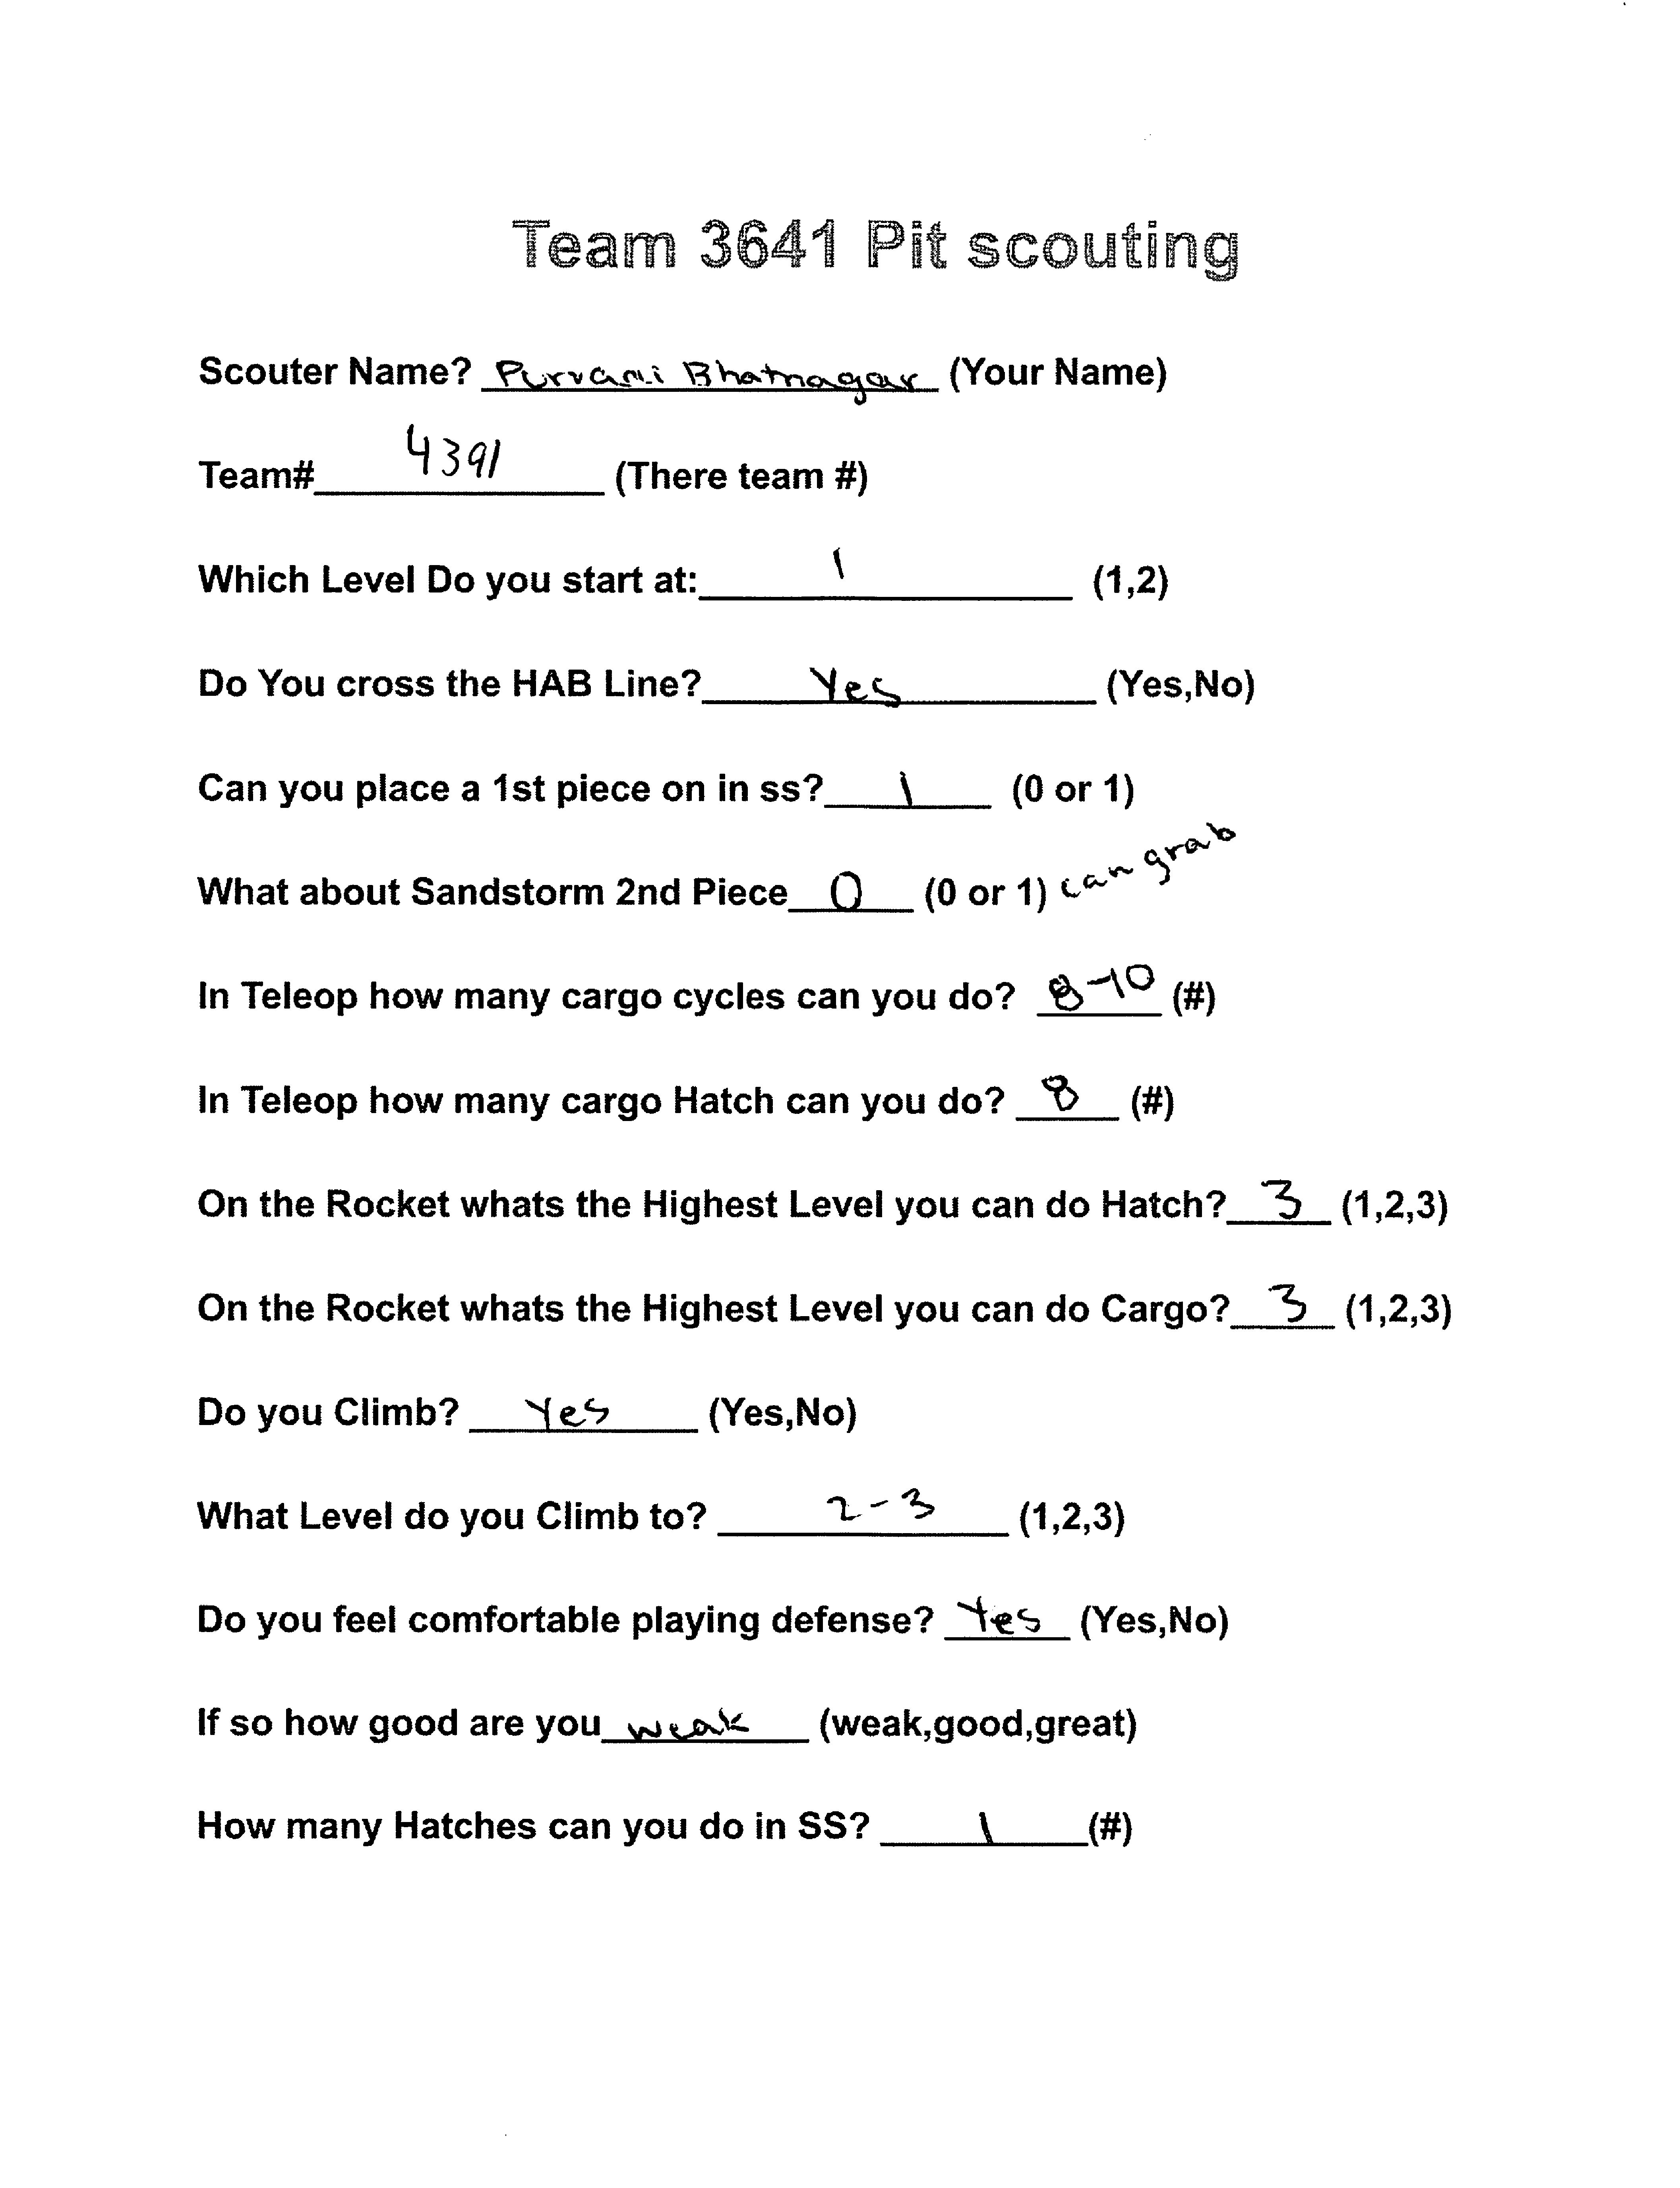 Team 3641 Pit scouting
Scouter Name? Purvani Bhatnagar (Your Name)
Team# 4391 (There team #)
Which Level Do you start at: 1 (1,2)
Do You cross the HAB Line? Yes (Yes,No)
Can you place a 1st piece on in ss? 1 (0 or 1)
What about Sandstorm 2nd Piece 0 (0 or 1) can grab
In Teleop how many cargo cycles can you do? 8-10 (#)
In Teleop how many cargo Hatch can you do? 8 (#)
On the Rocket whats the Highest Level you can do Hatch? 3 (1,2,3)
On the Rocket whats the Highest Level you can do Cargo? 3 (1,2,3)
Do you Climb? Yes (Yes,No)
What Level do you Climb to? 2-3 (1,2,3)
Do you feel comfortable playing defense? Yes (Yes,No)
If so how good are you weak (weak,good,great)
How many Hatches can you do in SS? 1 (#)